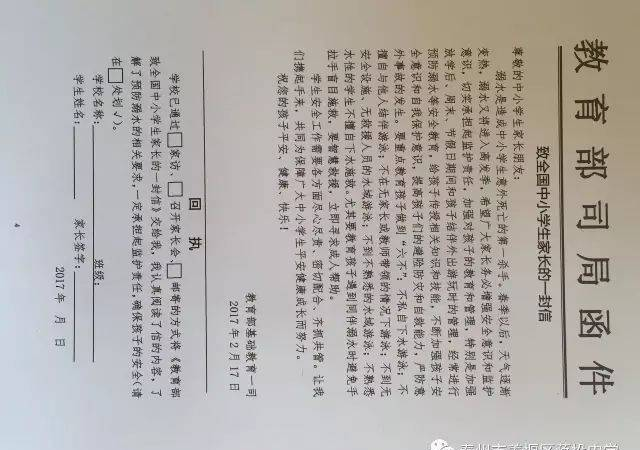 教育部司局函件
致全国中小学生家长的一封信
尊敬的中小学生家长朋友：
溺水是造成中小学生意外死亡的第一杀手。春季以后，天气逐渐
变热，溺水又将进入高发季。希望广大家长务必增强安全意识和监护
意识，切实承担起监护责任，加强对孩子的教育和管理，特别是加强
放学后、周末、节假日期间和孩子结伴外出游玩时的管理，经常进行
预防溺水等安全教育，给孩子传授相关知识和技能，不断加强孩子安
全意识和自我保护意识，提高孩子们的避险防灾和自救能力，严防意
外事故的发生。要重点教育孩子做到“六不”：不私自下水游泳；不
擅自与他人结伴游泳；不在无家长或教师带领的情况下游泳；不到无
安全设施、无救援人员的水域游泳；不到不熟悉的水域游泳；不熟悉
水性的学生不擅自下水施救。尤其要教育孩子遇到同伴溺水时避免手
拉手盲目施救，要智慧救援，立即寻求成人帮助。
学生安全工作需要各方面尽心尽责、密切配合、齐抓共管。让我
们携起手来，共同为保障广大中小学生平安健康成长而努力。
祝您的孩子平安、健康、快乐！
教育部基础教育一司
2017年2月17日
回 执
学校已通过□家访、□召开家长会、□邮寄的方式将《教育部
致全国中小学生家长的一封信》交给我，我认真阅读了信的内容，了
解了预防溺水的相关要求，一定承担起监护责任，确保孩子的安全（请
在□处划√）。
学校名称： 班级：
学生姓名： 家长签字：
2017年 月 日
4